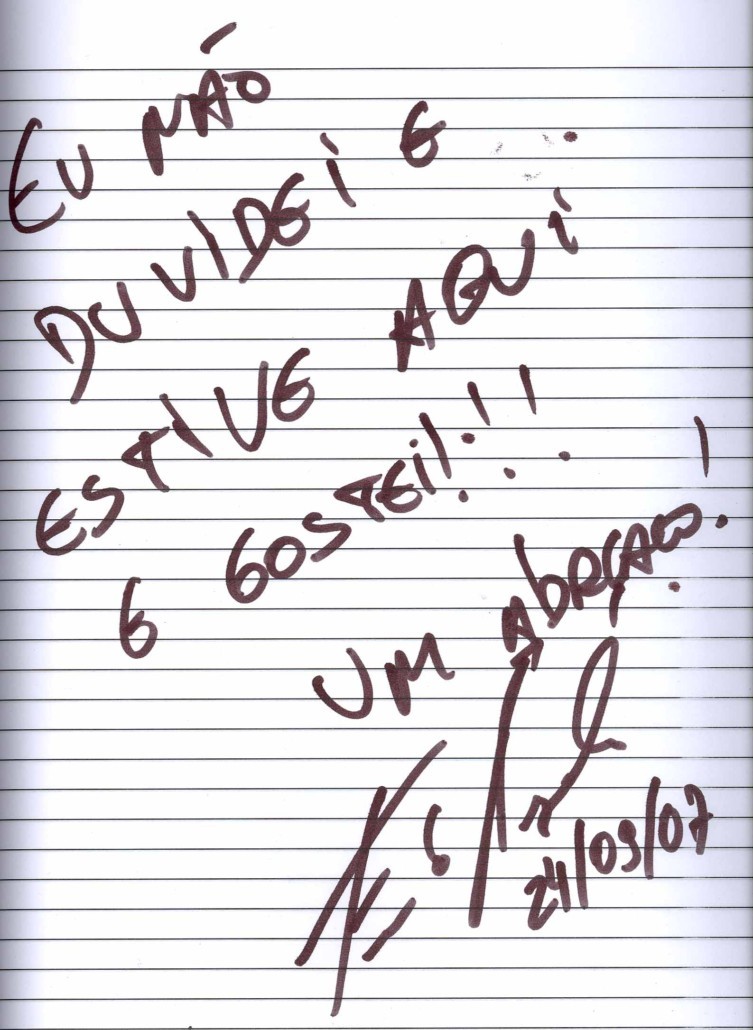 EU NÃO
DUVIDEI E
ESTIVE AQUI
E GOSTEI!!!
UM AbRÇAÇO!!
24/09/07